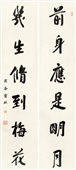 前身應是明月
幾生脩到梅花